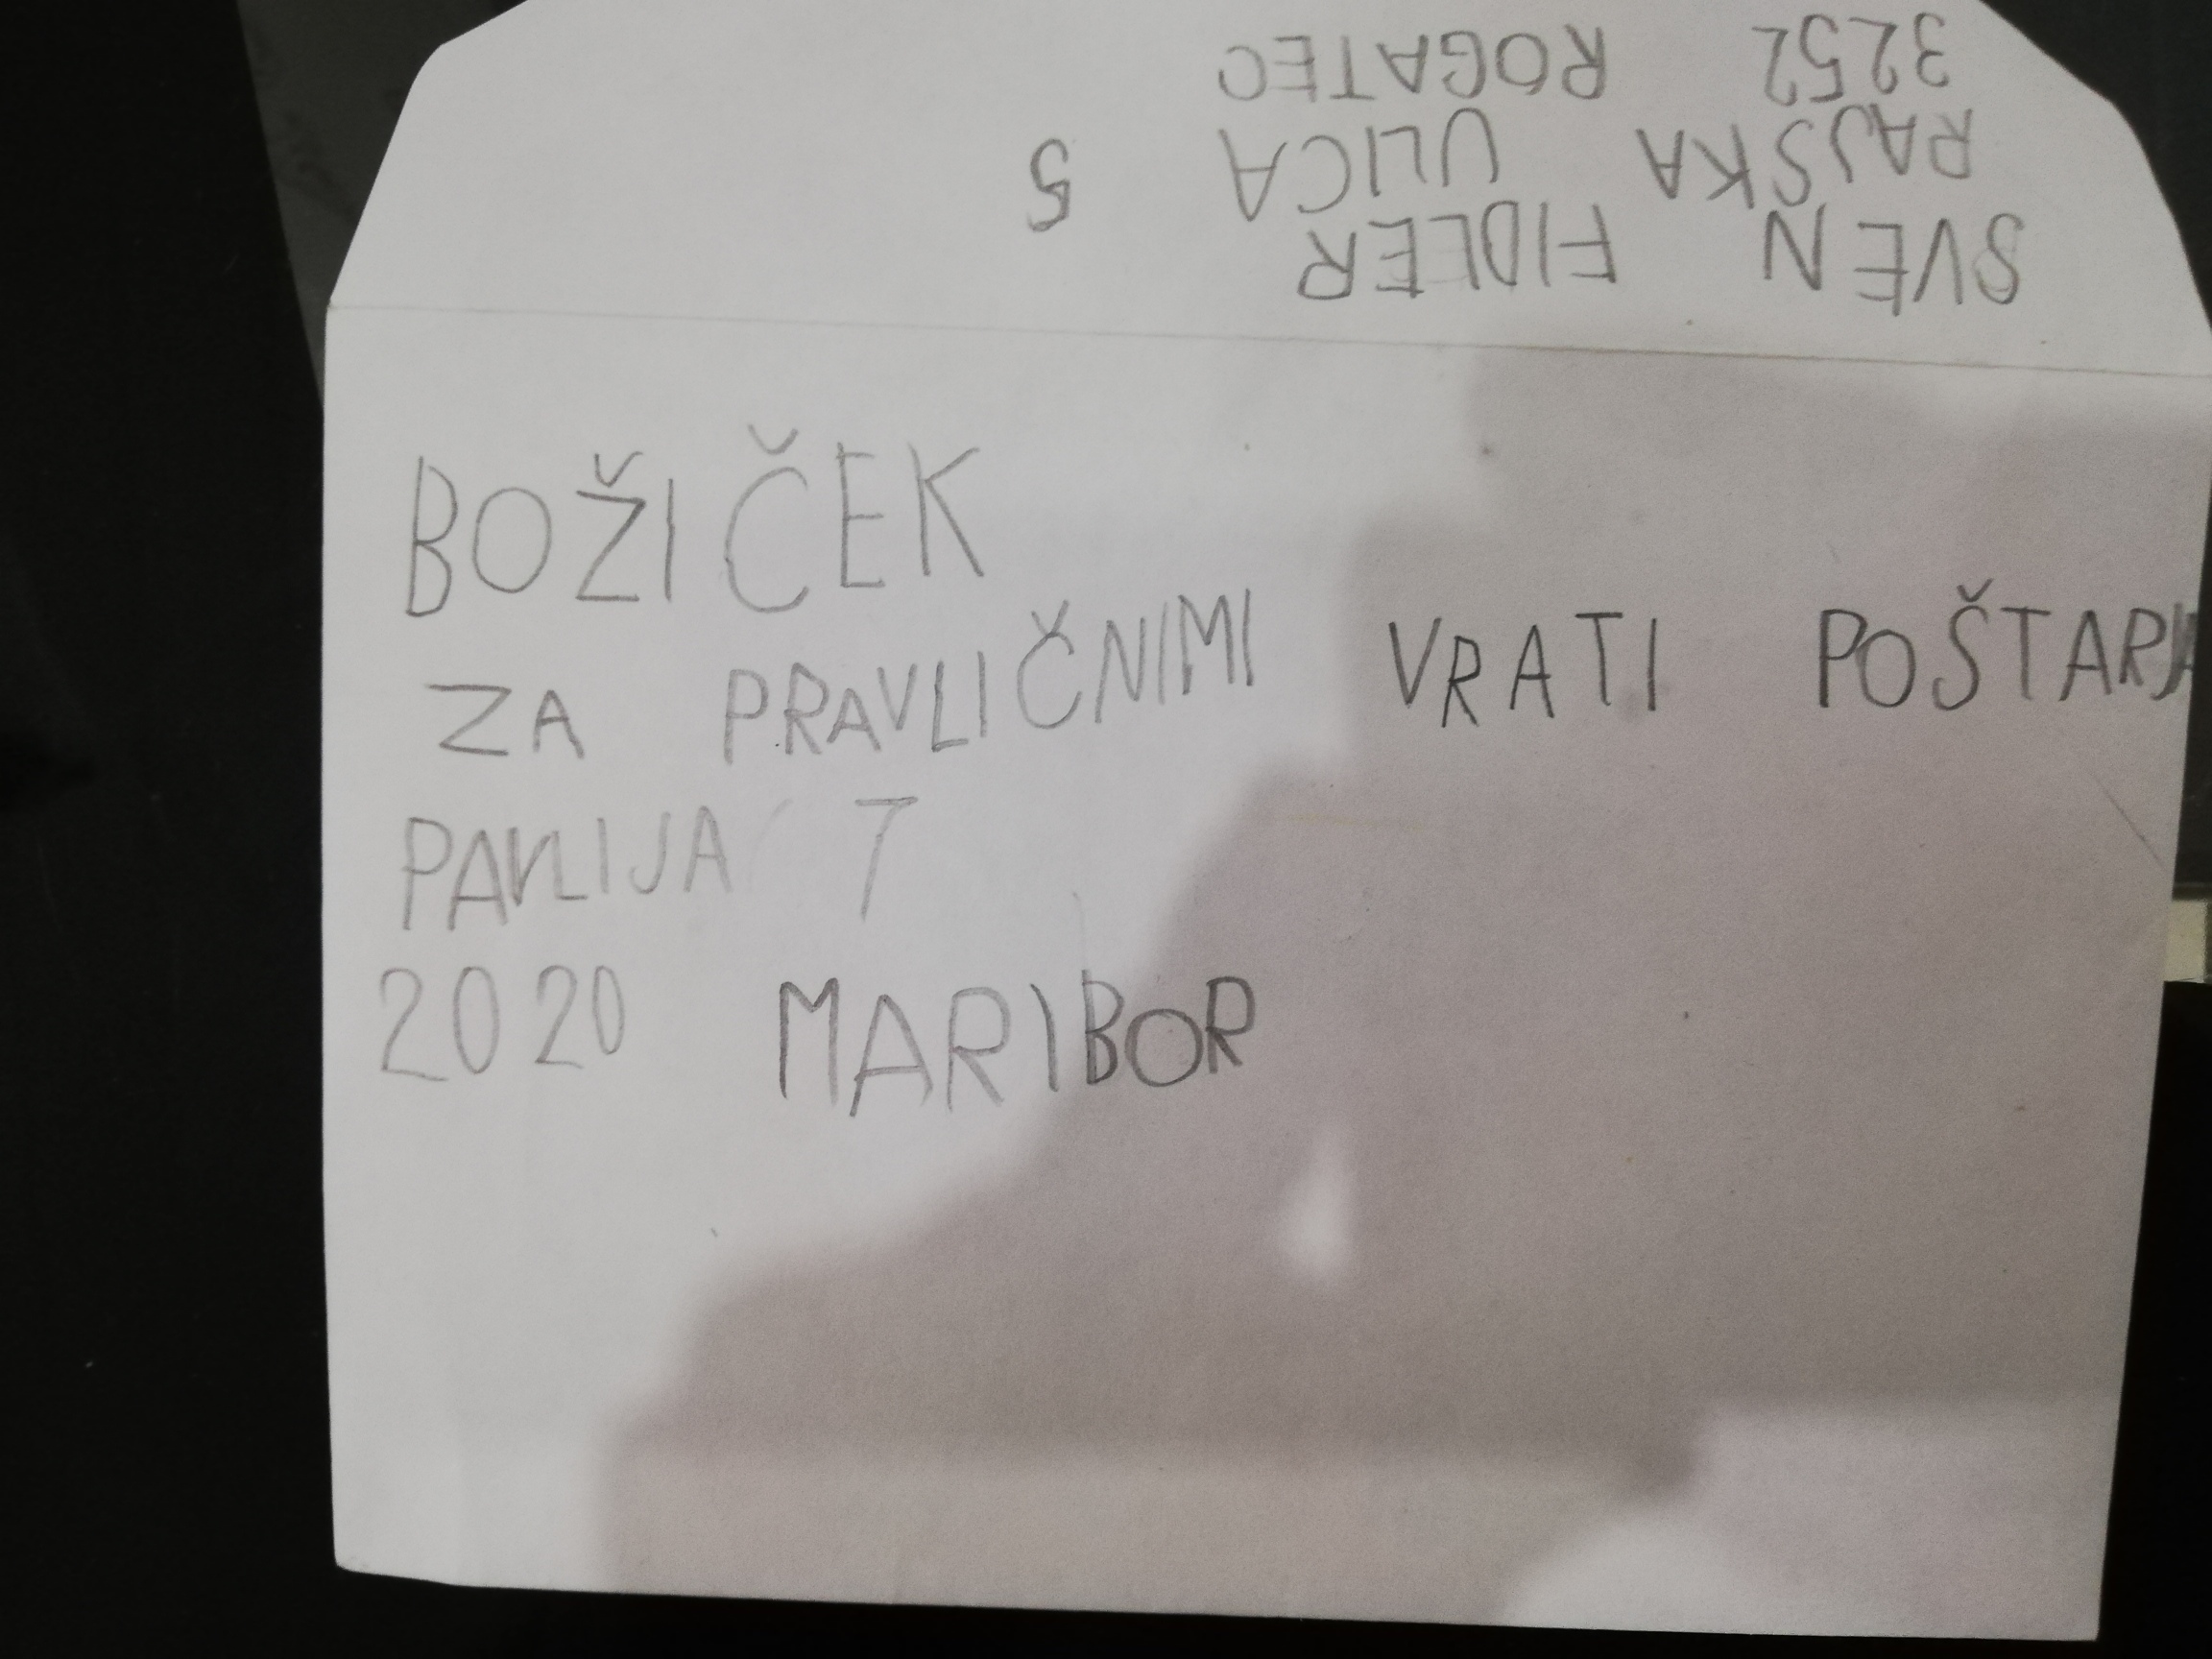 SVEN FIDLER
RAJSKA ULICA 5
3252 ROGATEC
BOŽIČEK
ZA PRAVLIČNIMI VRATI POŠTARJA
PAVLIJA 7
2020 MARIBOR